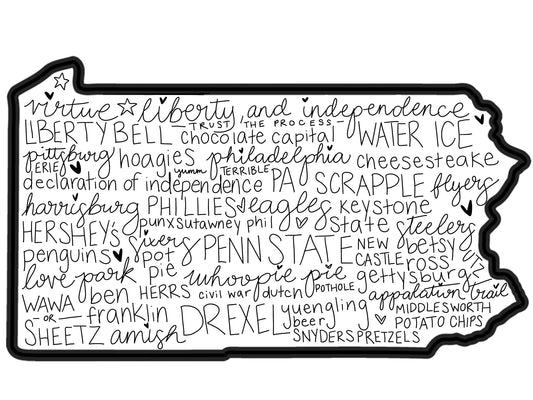 virtue liberty and independence
LIBERTY BELL TRUST THE PROCESS WATER ICE
chocolate capital
pittsburg hoagies philadelphia cheesesteake
ERIE yumm TERRIBLE
declaration of independence PA SCRAPPLE flyers
harrisburg PHILLIES eagles keystone state
HERSHEY'S punxsutawney phil steelers
penguins sixers PENN STATE NEW CASTLE betsy ross
love park pot pie whoopie pie gettysburg
WAWA ben franklin HERRS civil war dutch POTHOLE appalation trail
OR
SHEETZ amish DREXEL yuengling beer MIDDLESWORTH POTATO CHIPS
SNYDERS PRETZELS